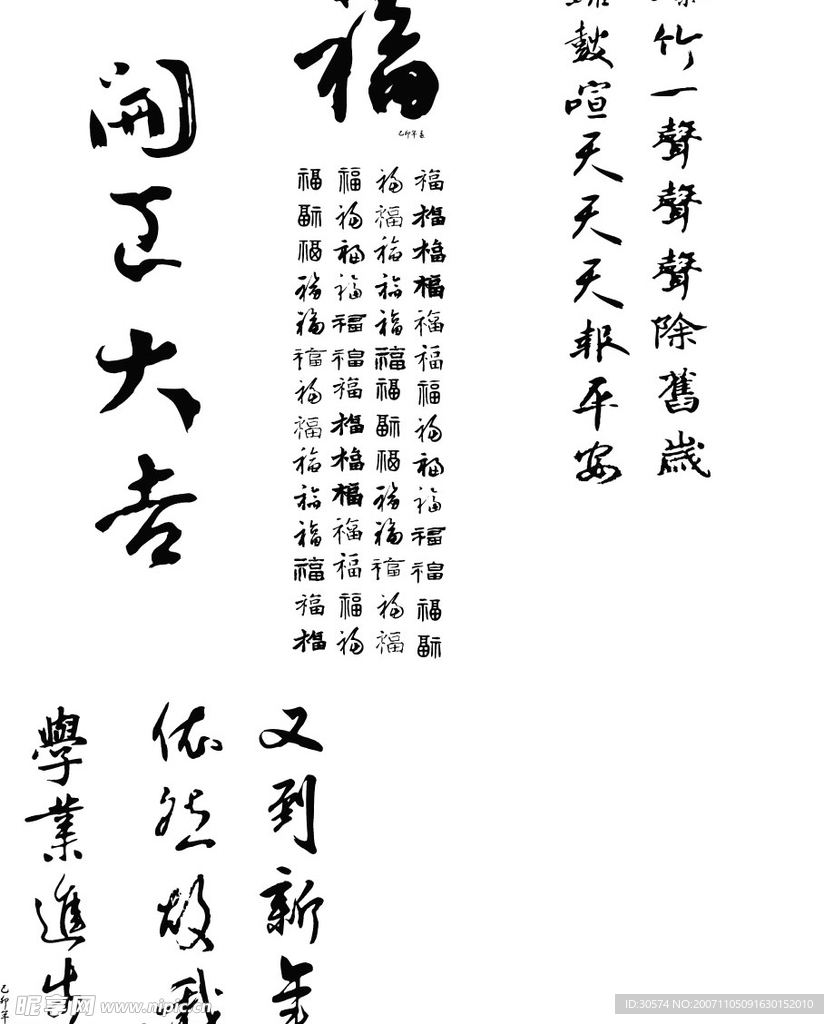 竹一聲聲聲除舊歲
鼓喧天天天報平安
福
己卯年春
福福福福福福福福福福福福福福
福福福福福福福福福福福福福福
福福福福福福福福福福福福福福
福福福福福福福福福福福福福福
開工大吉
又到新年
依然故我
學業進步
己卯年
昵享网 www.nipic.cn
ID:30574 NO:20071105091630152010